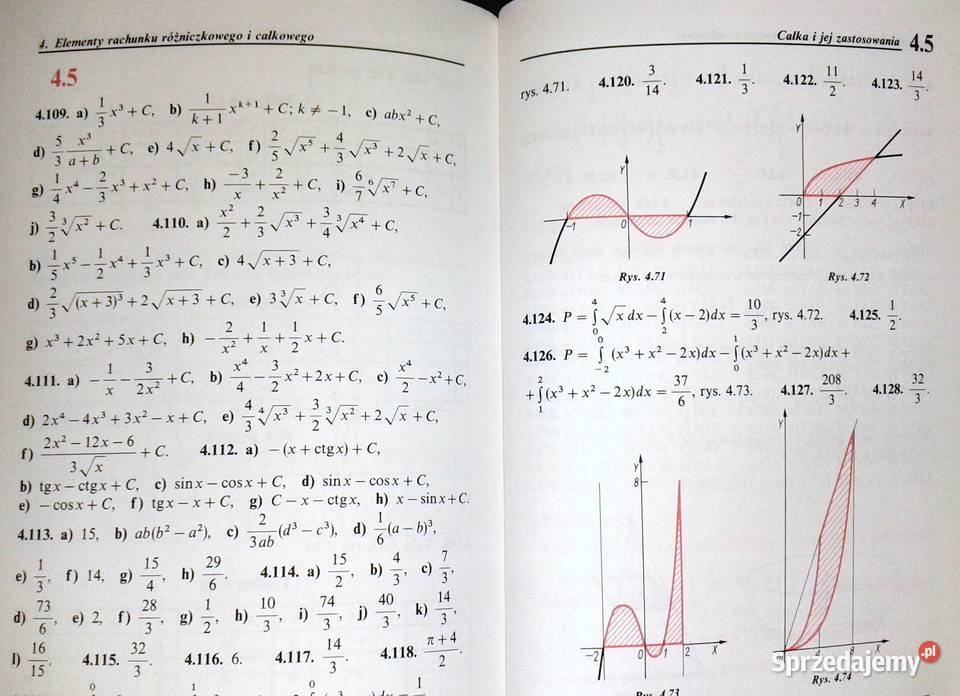 4. Elementy rachunku różniczkowego i całkowego
4.5
4.109. a) 1/3 x³ + C, b) 1/(k+1) x^(k+1) + C; k ≠ −1, c) abx² + C,
d) 5/3 x³/(a+b) + C, e) 4√x + C, f) 2/5 √x⁵ + 4/3 √x³ + 2√x + C,
g) 1/4 x⁴ − 2/3 x³ + x² + C, h) −3/x + 2/x² + C, i) 6/7 ⁶√x⁷ + C,
j) 3/2 ³√x² + C. 4.110. a) x²/2 + 2/3 √x³ + 3/4 ³√x⁴ + C,
b) 1/5 x⁵ − 1/2 x⁴ + 1/3 x³ + C, c) 4√(x+3) + C,
d) 2/3 √((x+3)³) + 2√(x+3) + C, e) 3 ³√x + C, f) 6/5 √x⁵ + C,
g) x³ + 2x² + 5x + C, h) −2/x² + 1/x + 1/2 x + C.
4.111. a) −1/x − 3/(2x²) + C, b) x⁴/4 − 3/2 x² + 2x + C, c) x⁴/2 − x² + C,
d) 2x⁴ − 4x³ + 3x² − x + C, e) 4/3 ⁴√x³ + 3/2 ³√x² + 2√x + C,
f) (2x² − 12x − 6)/(3√x) + C. 4.112. a) −(x + ctgx) + C,
b) tgx − ctgx + C, c) sinx − cosx + C, d) sinx − cosx + C,
e) −cosx + C, f) tgx − x + C, g) C − x − ctgx, h) x − sinx + C.
4.113. a) 15, b) ab(b² − a²), c) 2/(3ab) (d³ − c³), d) 1/6 (a − b)³,
e) 1/3, f) 14, g) 15/4, h) 29/6. 4.114. a) 15/2, b) 4/3, c) 7/3,
d) 73/6, e) 2, f) 28/3, g) 1/2, h) 10/3, i) 74/3, j) 40/3, k) 14/3,
l) 16/15. 4.115. 32/3. 4.116. 6. 4.117. 14/3. 4.118. (π+4)/2.
Całka i jej zastosowania 4.5
rys. 4.71. 4.120. 3/14. 4.121. 1/3. 4.122. 11/2. 4.123. 14/3.
Y
−1 0 1 X
Rys. 4.71
Y
0 1 2 3 4 X
−1
−2
Rys. 4.72
4.124. P = ∫₀⁴ √x dx − ∫₂⁴ (x − 2)dx = 10/3, rys. 4.72. 4.125. 1/2.
4.126. P = ∫₋₂⁰ (x³ + x² − 2x)dx − ∫₀¹ (x³ + x² − 2x)dx +
+ ∫₁² (x³ + x² − 2x)dx = 37/6, rys. 4.73. 4.127. 208/3. 4.128. 32/3.
Y
8
−2 0 1 2 X
Rys. 4.73
Y
4 8 X
Rys. 4.74
Sprzedajemy.pl